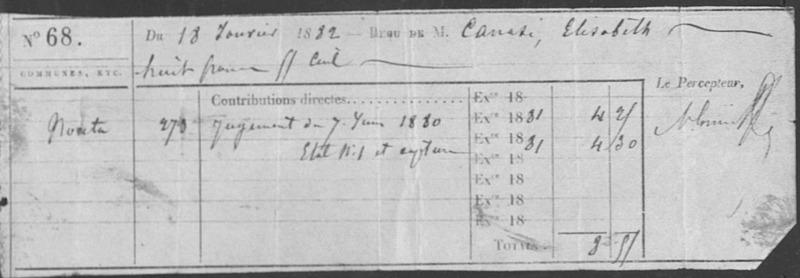 N° 68.
Du 18 Février 1882 — Reçu de M. Canasi, Elisabeth
huit francs 55 Cent
COMMUNES, ETC.
Le Percepteur,
Contributions directes
Exce 18
Nonta 273 Jugement du 7 Juin 1880 Exce 1881 4 25
Etat N°1 et capture Exce 1881 4 30
Exce 18
Exce 18
Exce 18
Exce 18
TOTAUX. 8 55